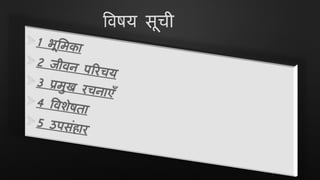 विषय सूची
1 भूमिका
2 जीवन परिचय
3 प्रमुख रचनाएँ
4 विशेषता
5 उपसंहार